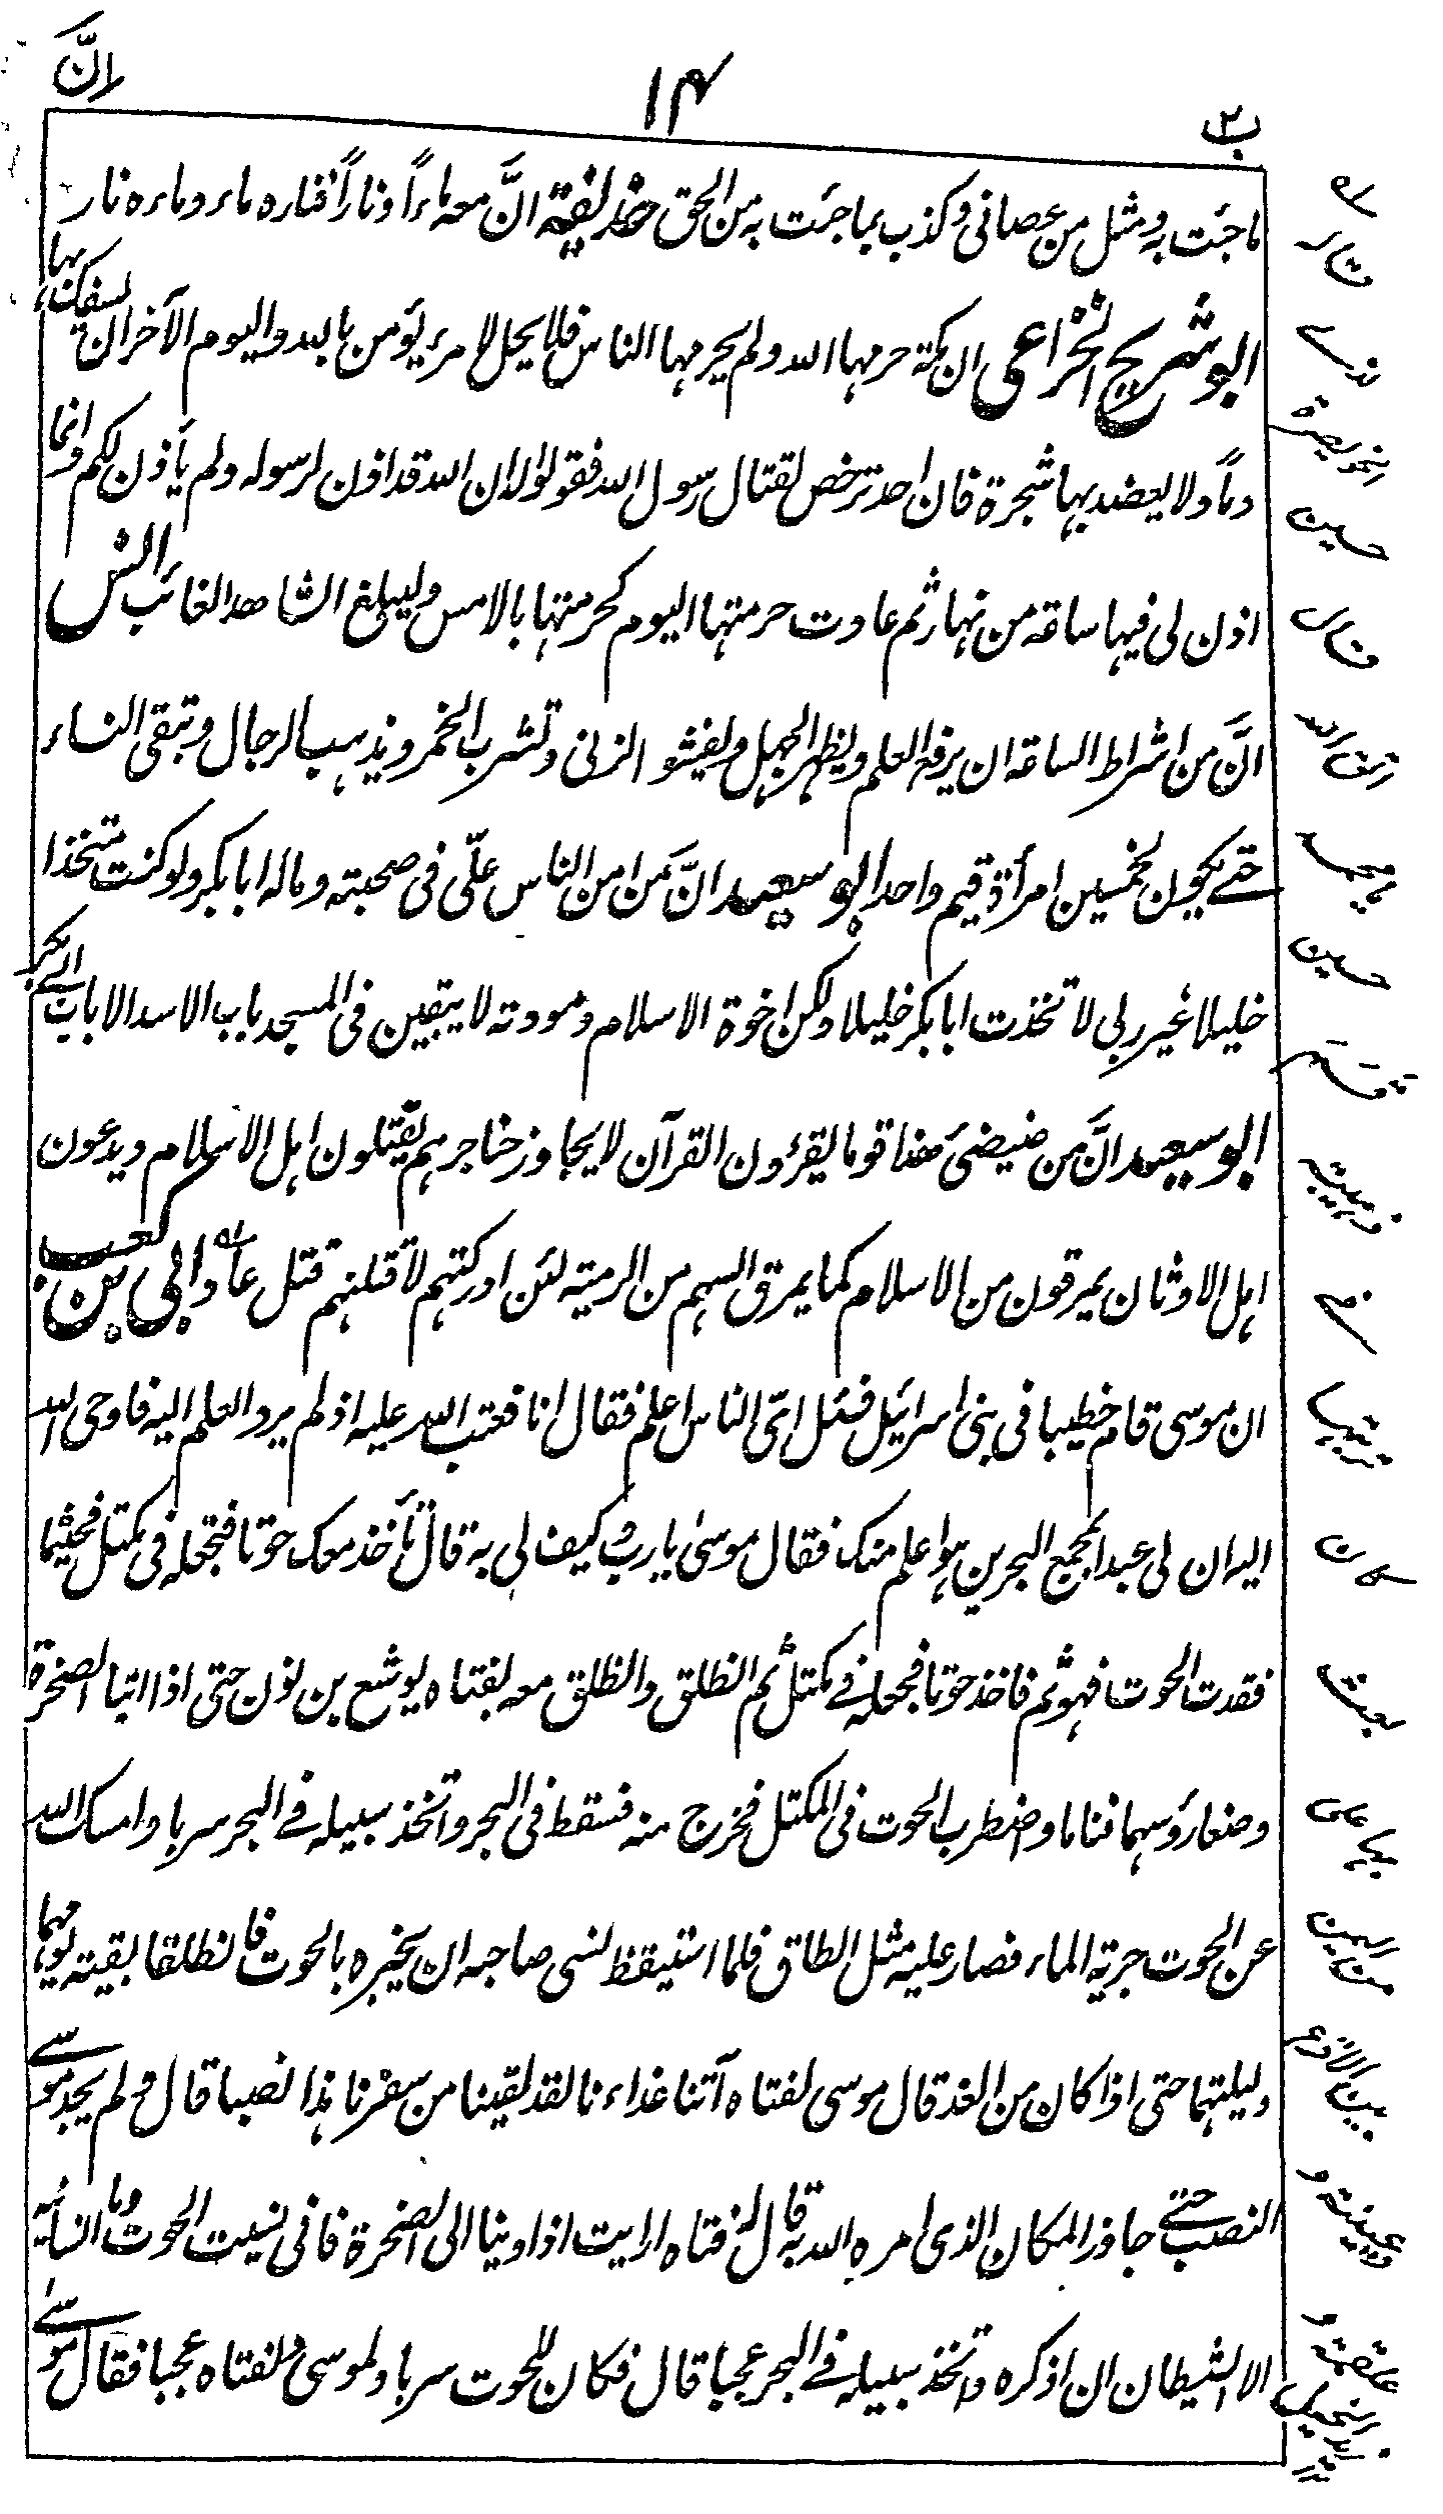 انّ
١٤
ب٢
ما جئت به ومثل من عصانى وكذب بما جئت به من الحق حذيفة انّ معه ماءاً وناراً فناره ماء وماءه نار
ابو شريح الخزاعى ان مكة حرمها الله ولم يحرمها الناس فلا يحل لامرئ يؤمن بالله واليوم الآخر ان يسفك بها
دماً ولا يعضد بها شجرة فان احد ترخص لقتال رسول الله فقولوا ان الله قد اذن لرسوله ولم يأذن لكم وانما
اذن لى فيها ساعة من نهار ثم عادت حرمتها اليوم كحرمتها بالامس وليبلغ الشاهد الغائب انس
انّ من اشراط الساعة ان يرفع العلم ويظهر الجهل ويفشو الزنى وتشرب الخمر ويذهب الرجال وتبقى النساء
حتے يكون لخمسين امرأة قيم واحد ابو سعيد انّ من امن الناس علّى فى صحبته وماله ابا بكر ولو كنت متخذا
خليلا غير ربى لاتخذت ابا بكر خليلا ولكن اخوة الاسلام ومودته لا يبقين فى المسجد باب الا سد الا باب ابى بكر
ابو سعيد انّ من ضئضئ هذا قوما يقرؤن القرآن لا يجاوز حناجرهم يقتلون اهل الاسلام ويدعون
اهل الاوثان يمرقون من الاسلام كما يمرق السهم من الرمية لئن ادركتهم لاقتلنهم قتل عاد ابى بن كعب
ان موسى قام خطيبا فى بنى اسرائيل فسئل اىّ الناس اعلم فقال انا فعتب الله عليه اذ لم يرد العلم اليه فاوحى الله
اليه ان لى عبدا بمجمع البحرين هو اعلم منك فقال موسىٰ يا رب وكيف لى به قال تأخذ معك حوتا فتجعله فى مكتل فحيثما
فقدت الحوت فهو ثم فاخذ حوتا فجعله فے مكتل ثم انطلق وانطلق معه بفتاه يوشع بن نون حتى اذا اتيا الصخرة
وضعا رؤسهما فناما واضطرب الحوت فى المكتل فخرج منه فسقط فى البحر واتخذ سبيله فے البحر سربا وامسك الله
عن الحوت جرية الماء فصار عليه مثل الطاق فلما استيقظ نسى صاحبه ان يخبره بالحوت فانطلقا بقية يومهما
وليلتهما حتى اذا كان من الغد قال موسى لفتاه آتنا غداءنا لقد لقينا من سفرنا هذا نصبا قال ولم يجد موسے
النصب حتے جاوز المكان الذى امره الله به قال له فتاه ارايت اذ اوينا الى الصخرة فانى نسيت الحوت وما انسانيه
الا الشيطان ان اذكره واتخذ سبيله فے البحر عجبا قال فكان للحوت سربا ولموسى ولفتاه عجبا فقال موسے
حسين
حسين